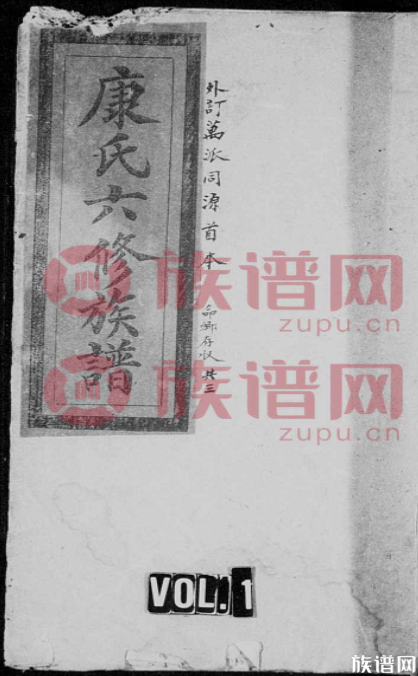 康氏六修族譜
外訂萬派同源首本
存收共三
族谱网
zupu.cn
族谱网
zupu.cn
VOL. 1
族谱网